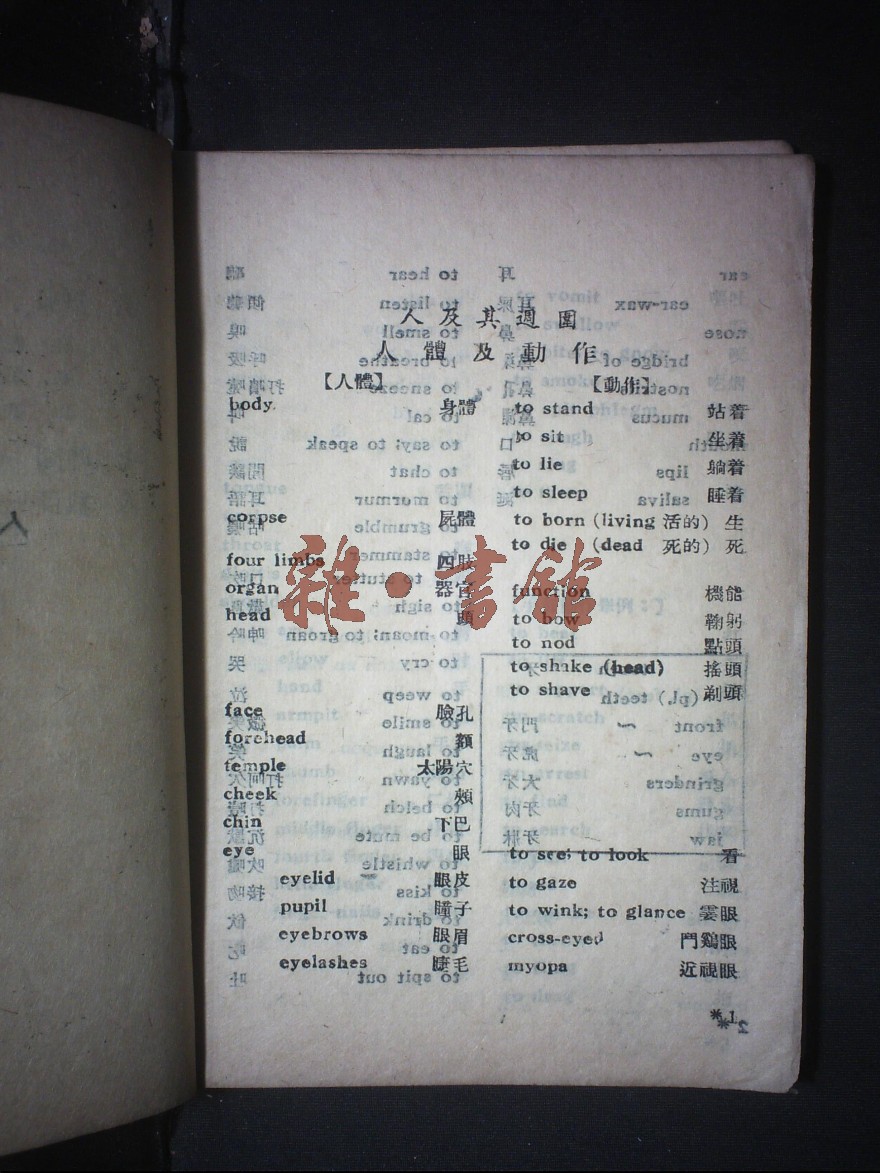 人及其週圍
人體及動作
【人體】 【動作】
body 身體 to stand 站着
to sit 坐着
to lie 躺着
to sleep 睡着
corpse 屍體 to born (living 活的) 生
to die (dead 死的) 死
four limbs 四肢
organ 器官 function 機能
head 頭 to bow 鞠躬
to nod 點頭
to shake (head) 搖頭
to shave 剃頭
face 臉孔
forehead 額
temple 太陽穴
cheek 頰
chin 下巴
eye 眼 to see; to look 看
eyelid 眼皮 to gaze 注視
pupil 瞳子 to wink; to glance 霎眼
eyebrows 眼眉 cross-eyed 鬥鷄眼
eyelashes 睫毛 myopa 近視眼
*1
雜·書館